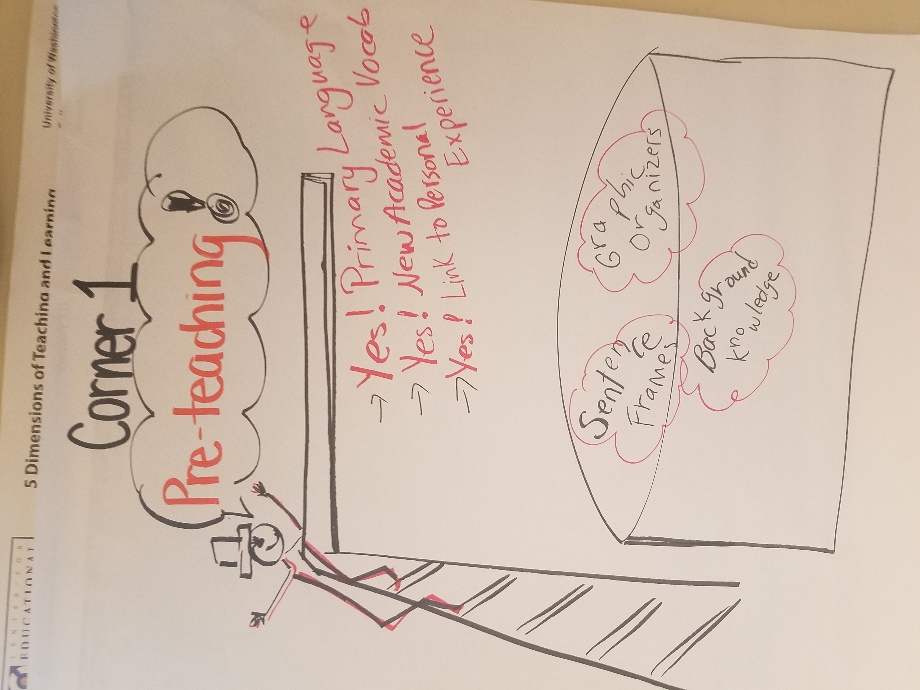 5 Dimensions of Teaching and Learning
University of Washington
EDUCATIONAL
Corner 1
Pre-teaching
→ Yes! Primary Language
→ Yes! New Academic Vocab
→ Yes! Link to Personal
Experience
Graphic
Organizers
Sentence
Frames
Background
knowledge